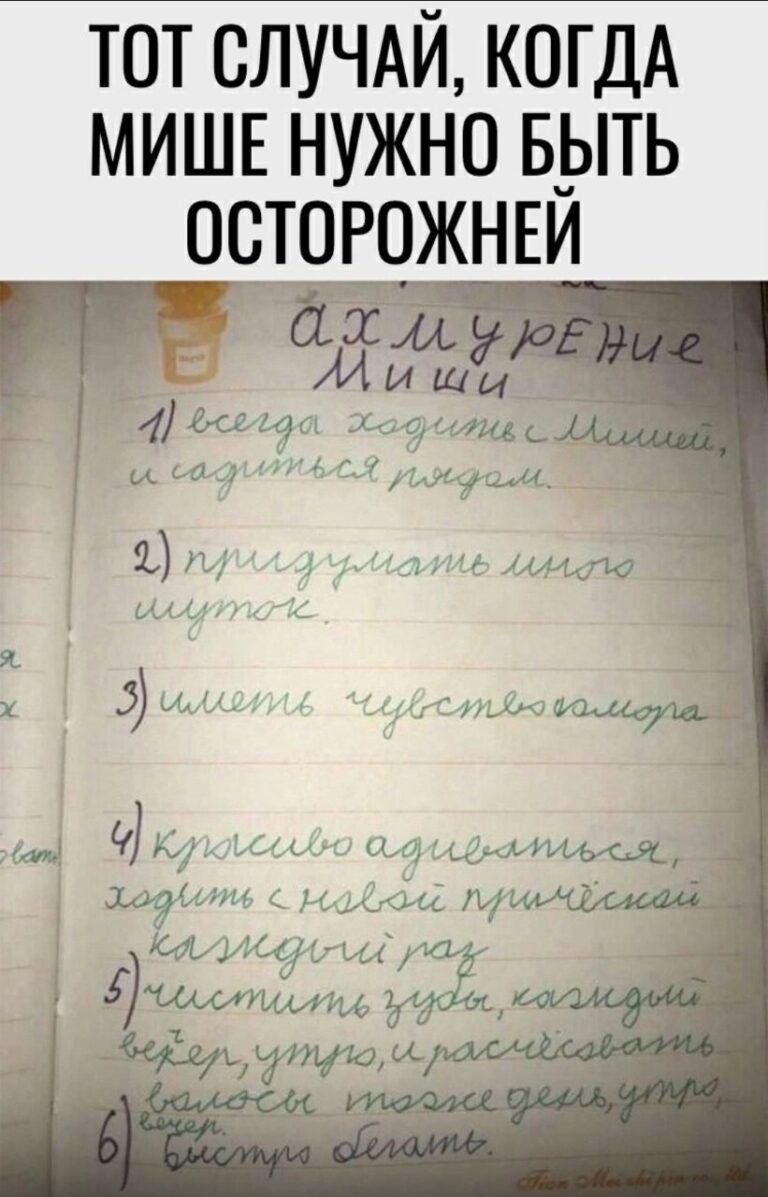 ТОТ СЛУЧАЙ, КОГДА
МИШЕ НУЖНО БЫТЬ
ОСТОРОЖНЕЙ
ахмурЕНие
Миши
1) всегда ходить с Мишей,
и садиться рядом.
2) придумать много
шуток.
3) иметь чувство юмора
4) красиво адиваться,
ходить с новой причёской
каждый раз
5) чистить зубы, каждый
вечер, утро, и расчёсовать
волосы тоже день, утро,
вечер.
6) быстро бегать.
я
х
овать